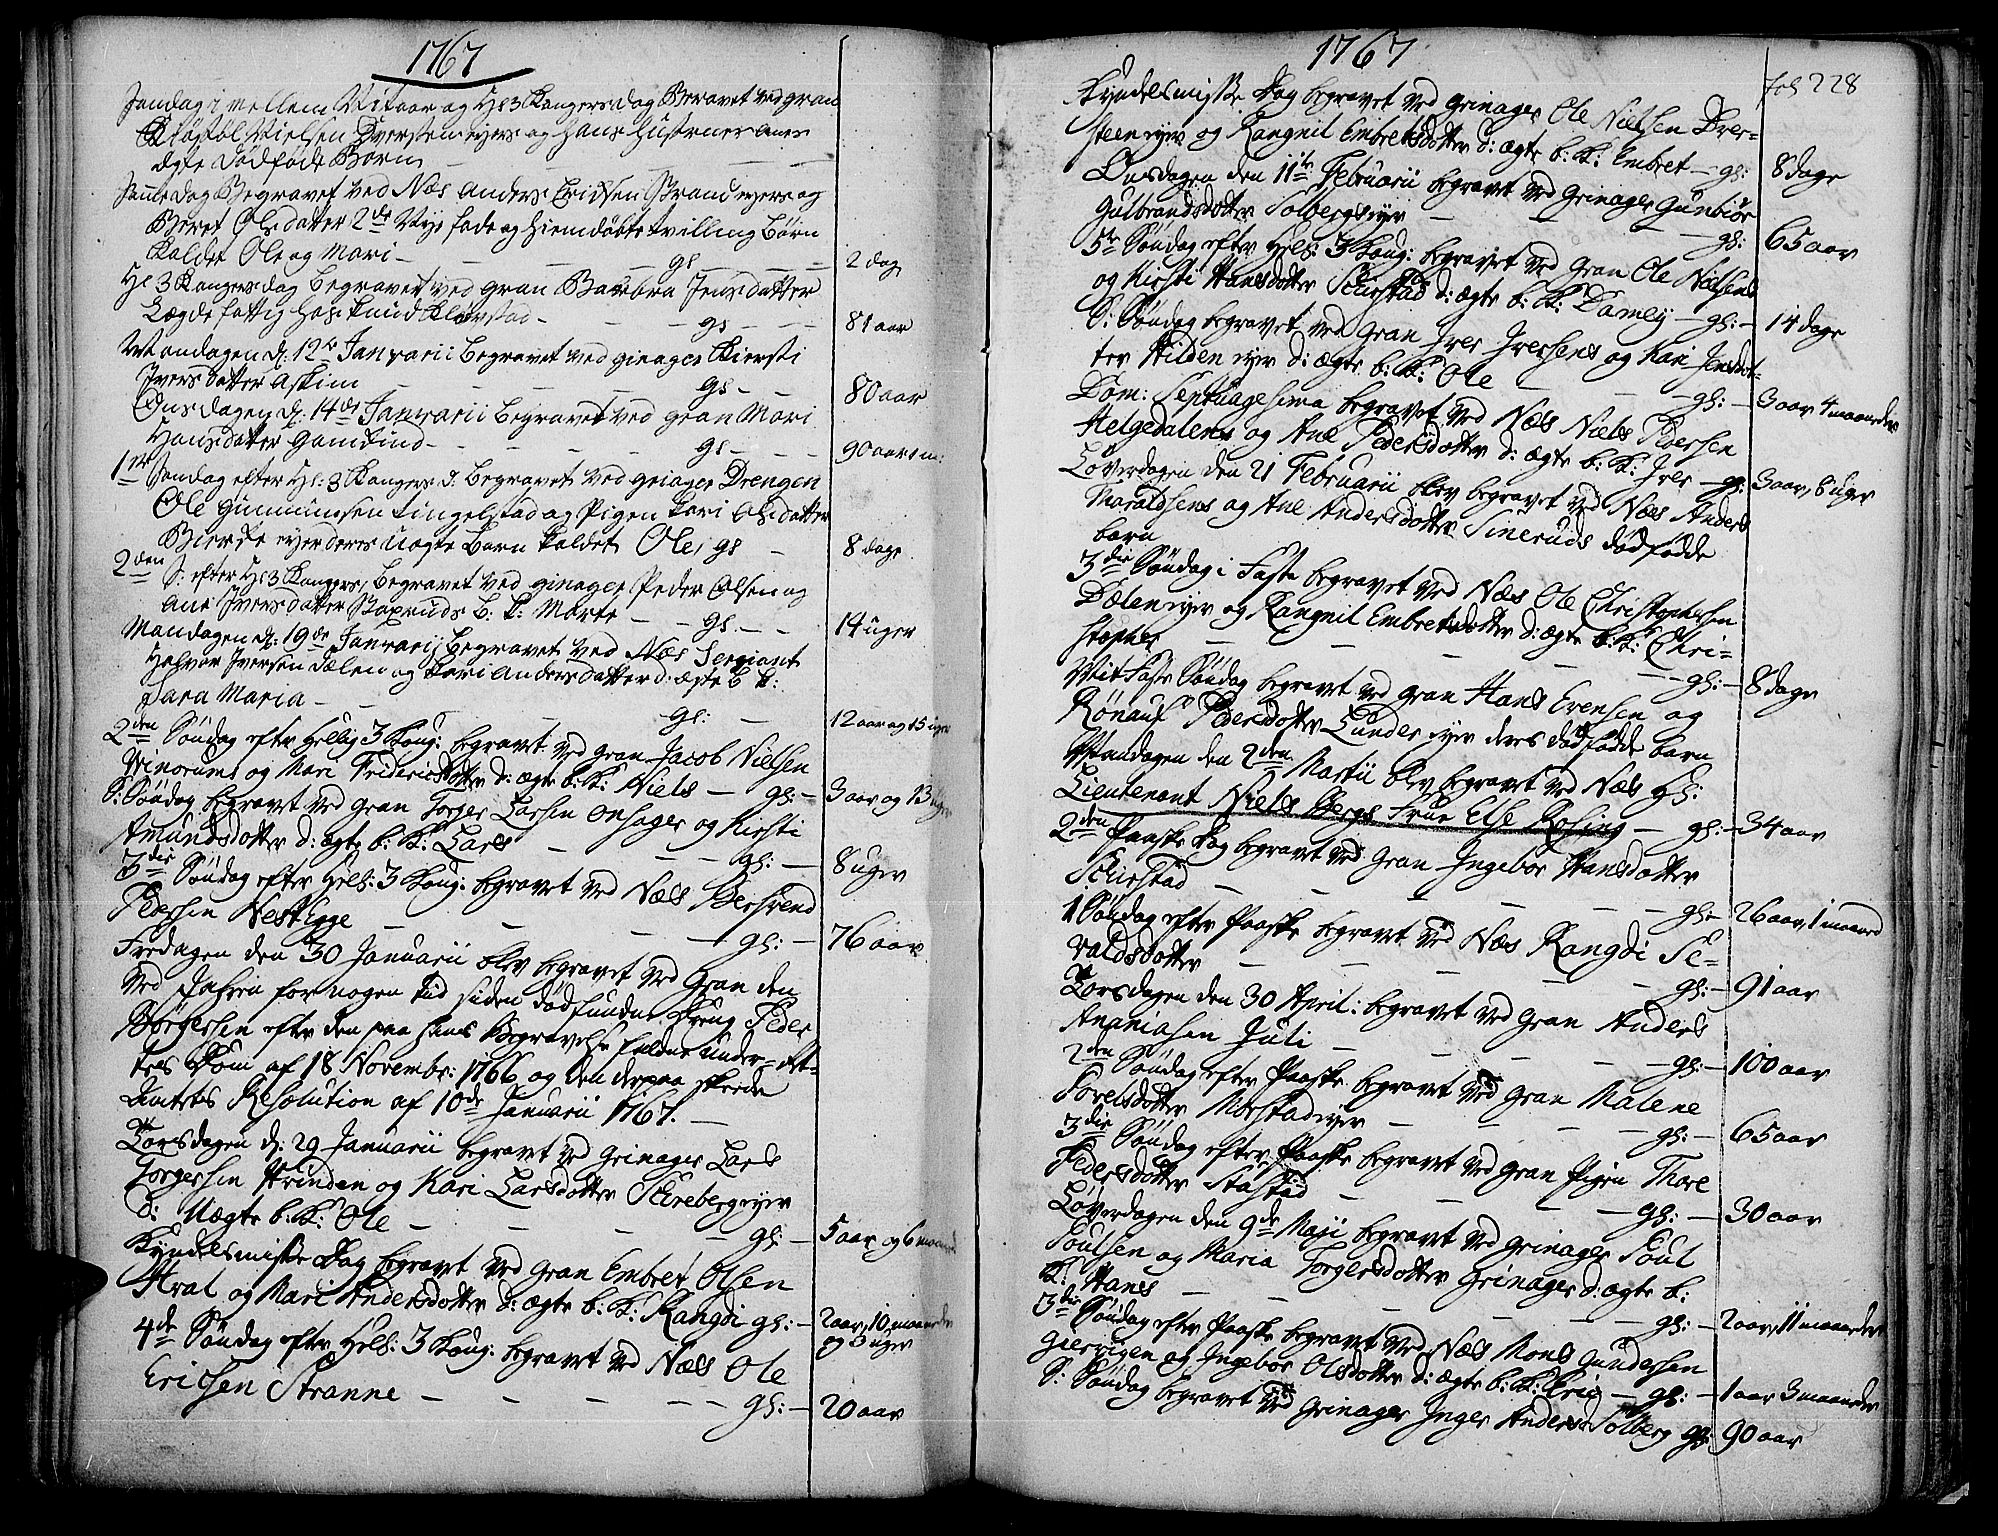 1767
Søndag i mellem Nit aar og Hl: 3 Kongersdag Beravet ved gran
Nielsen eyers og hans Hustrues
ægte dødføde Barn
Samme dag Begravet ved Næs Anders Erichsen Strand eyers og
Beret Ols datter 2de Nye føde og hiemdøbte tvilling Børn
kaldet Ole og Mari - gl - 2 dag
Hl 3 Kongersdag Begravet ved gran Barbra Jens datter
Lægdefattig hos Knud Klæstad - gl - 81 aar
Mandagen d: 12te Januarii Begravet ved ginager Kiersti
Ivers datter Askim - gl - 80 aar
Onsdagen d: 14de Januarii Begravet ved gran Mari
Hansdatter Gamkind - gl - 90 aar 1 m:
1ste Søndag efter Hl: 3 Kongers d. Begravet ved griager Drengen
Ole Gunmunsen tingelstad og Pigen Kari Olsdatter
Bierke eyer deres Uægte Barn kaldet Ole, gl - 8 dage
2den S: efter Hl 3 Kongers, Begravet ved ginager Peder Olsen og
Ane Ivers datter Baxruds B: k: Marte - gl - 14 uger
Mandagen d: 19de Januarij Begravet ved Næs Sergiant
Halvor Iversen Dælen og Kari Anders datter d: ægte b k:
Sara Maria - gl: - 12 aar og 15 uger
2den Søndag efter Hellig 3 Kong: begravet ved gran Jacob Nielsen
Vinorums og Mari Fridericsdotter d: ægte b: k: Niels - gl: - 3 aar og 13 uger
S: Søndag begravt ved gran Torger Larsen Onsager og Kirsti
Amundsdotter d: ægte b: k: Lars - gl: - 8 uger
3die Søndag efter Hell: 3 Kong: begravet ved Næs Bersvend
Pedersen NestEgge - gl: - 76 aar
Fredagen den 30 Januarii blev begravet ved Gran den
ved Jahren for nogen tid siden dødfundne Dreng Peder
Børgersen efter den paa hans Begravelse faldne under-Ret-
tes Dom af 18 Novembr: 1766 og den derpaa skeede
Amtets Resolution af 10de Januarii 1767. -
Torsdagen d: 29 Januarii begravt ved Grinager Lars
Torgersen Hvinden og Kari Larsdotter Schrebergeyer
d: Uægte b: k: Ole - gl: - 5 aar og 6 maaned
Kyndelsmisse Dag begravt ved Gran Embret Olsen
Hval og Mari Andersdotter d: ægte b: k: Rangdi gl: - 2 aar, 10 maaneder
og 3 uger
4de Søndag efter Hell: 3 Kong: begravt ved Næs Ole
Erichsen Stranne - gl: - 20 aar
1767
fol 228
Kyndelsmisse Dag begravet ved Grinager Ole Nielsen Dver-
steen eyer og Rangnil Embretsdotter d: ægte b: k: Embret - gl: 8 dage
Onsdagen den 11te Februarii begravet ved Grinager Gunbiør
Gulbrandsdotter Solbergeyer - gl: 65 aar
5te Søndag efter Hell: 3 Kong: begravet ved Gran Ole Nielsens
og Kirsti Hansdotter Schirstad d: ægte b: k: Damen - gl: - 14 dage
S: Søndag begravet ved Gran Iver Iversens og Kari Jensdot-
ter Hilden eyer d: ægte b: k: Ole - gl: - 3 aar 4 maaneder
Dom: Septuagesima begravet ved Næs Niels Peersen
Helgedalens og Ane Pedersdotter d: ægte b: k: Iver - gl: 3 aar, 6 uger
Løverdagen den 21 Februarii blev begravet ved Næs Anders
Haraldsens og Ane Andersdotter Sineruds dødfødde
barn
3die Søndag i Faste begravet ved Næs Ole Christophersen
Dælen eyer og Rangnil Embretsdotter d: ægte b: k: Chri-
stopher - gl: - 8 dage
Mit Faste Søndag begravt ved Gran Hans Evensen og
Rønauf Pedersdotter Lundes eyer deres dødfødde barn
Mandagen den 2den Martii blev begravet ved Næs Hl:
Lieutenant Niels Bergs Frue Else Rosing - gl: - 34 aar
2den Paaske Dag begravet ved Gran Ingebor Hansdotter
Schirstad - gl: 26 aar, 1 maaned
1 Søndag efter Paaske begravet ved Næs Rangdi Se-
valdsdotter - gl: - 91 aar
Torsdagen den 30 April: begravet ved Gran Anders
Ananiasen Juli - gl: - 100 aar
2den Søndag efter Paaske begravet ved Gran Malene
Povelsdotter Morstadeyer - gl: - 65 aar
3die Søndag efter Paaske begravet ved Gran Pigen Thore
Pedersdotter Stastad - gl: - 30 aar
Løverdagen den 9de Maji begravet ved Grinager Poul
Poulsen og Maria Torgersdotter Grinager d: ægte b:
k: Hans - gl: - 2 aar, 11 maaneder
3die Søndag efter Paaske begravet ved Næs Mons Gundersen
Gierrigen og Ingebor Olsdotter d: ægte b: k: Eric - gl: - 1 aar 3 maaneder
S: Søndag begravet ved Grinager Inger Andersd Solberg gl: 90 aar